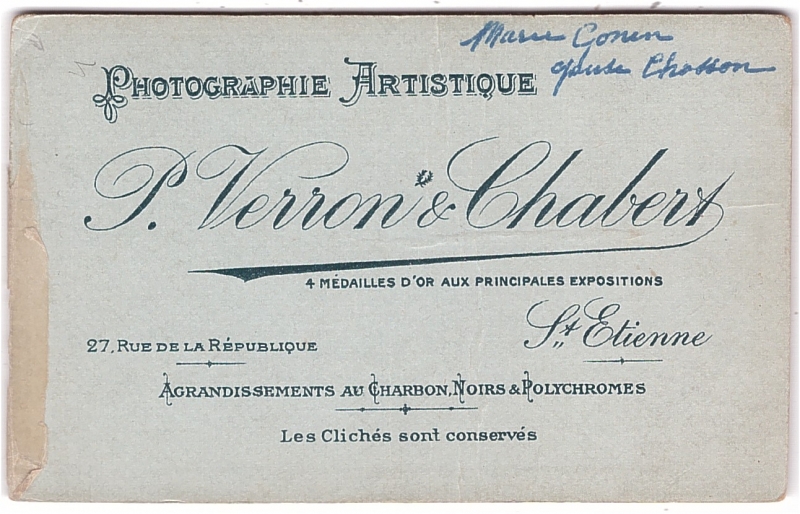 Marie Gonin
épuse Chosson
PHOTOGRAPHIE ARTISTIQUE
P. Verron & Chabert
4 MÉDAILLES D'OR AUX PRINCIPALES EXPOSITIONS
27, RUE DE LA RÉPUBLIQUE
St Etienne
AGRANDISSEMENTS AU CHARBON, NOIRS & POLYCHROMES
Les Clichés sont conservés